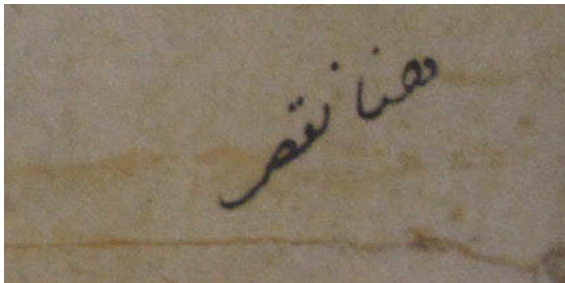 هنا نقص